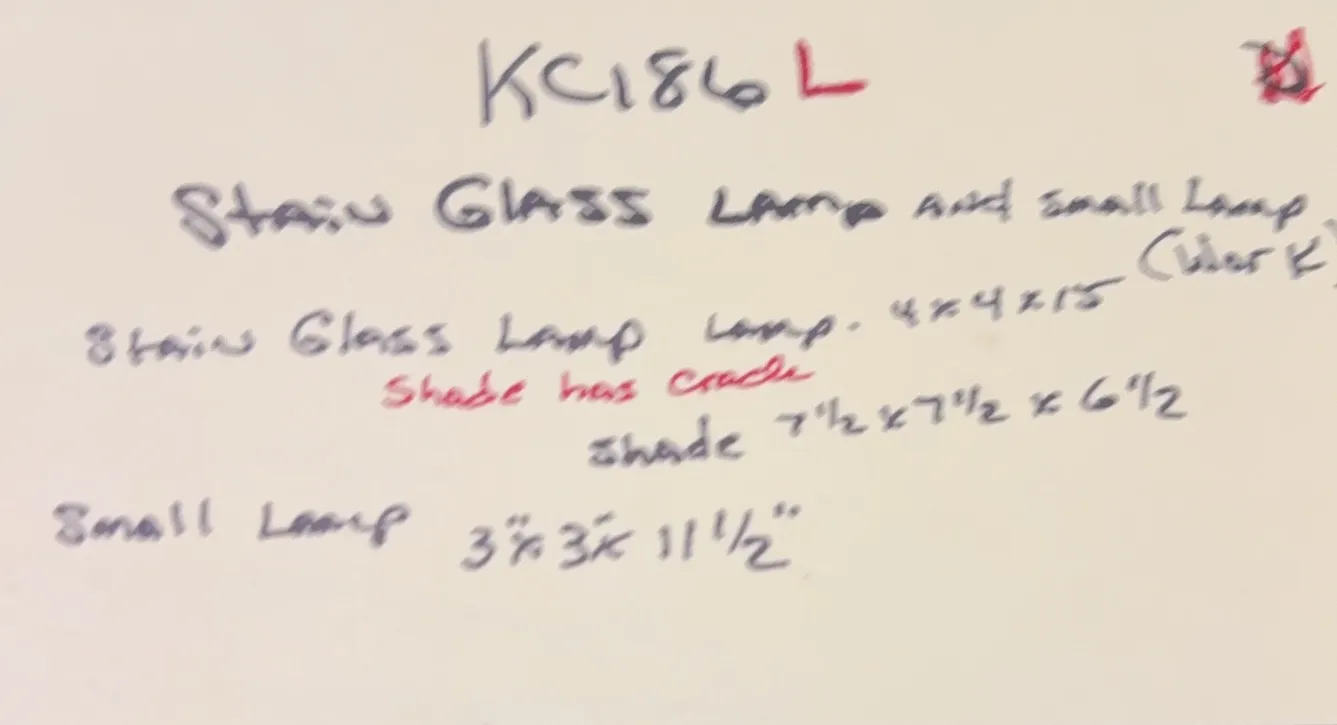 KC186 L
Stain Glass Lamp and small Lamp
(Work)
Stain Glass Lamp Lamp. 4x4x15
Shade has crack
shade 7 1/2 x 7 1/2 x 6 1/2
Small Lamp 3"x 3"x 11 1/2"